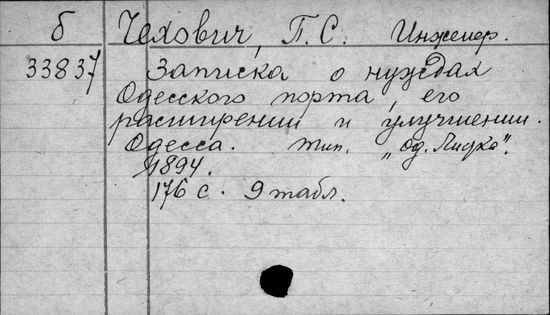 б Чехович, П. С. Инженер.
33837 Записка о нуждах
Одесского порта, его
расширении и улучшении.
Одесса. тип.
1894.
176 с. 9 табл.